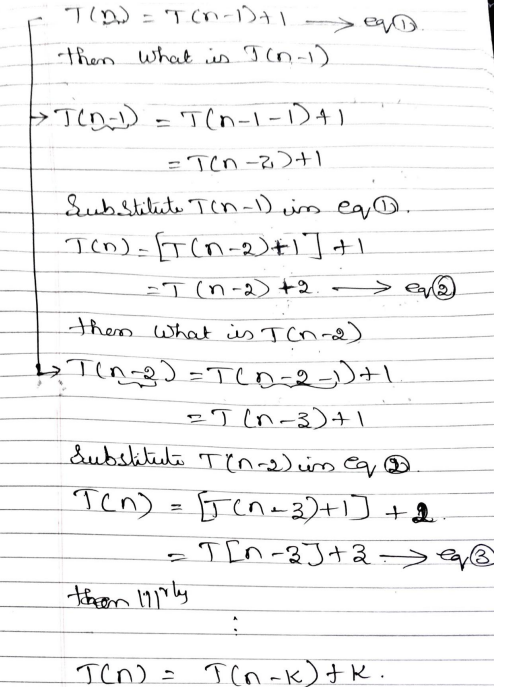 T(n) = T(n-1)+1 → eq①.
then what is T(n-1)
→ T(n-1) = T(n-1-1)+1
= T(n-2)+1
Substitute T(n-1) in eq①.
T(n) = [T(n-2)+1] +1
= T(n-2)+2 → eq②
then what is T(n-2)
→ T(n-2) = T(n-2-1)+1
= T(n-3)+1
Substitute T(n-2) in eq ②.
T(n) = [T(n-3)+1] +2.
= T[n-3]+3 → eq③
then lllrly
⋮
T(n) = T(n-k)+k.